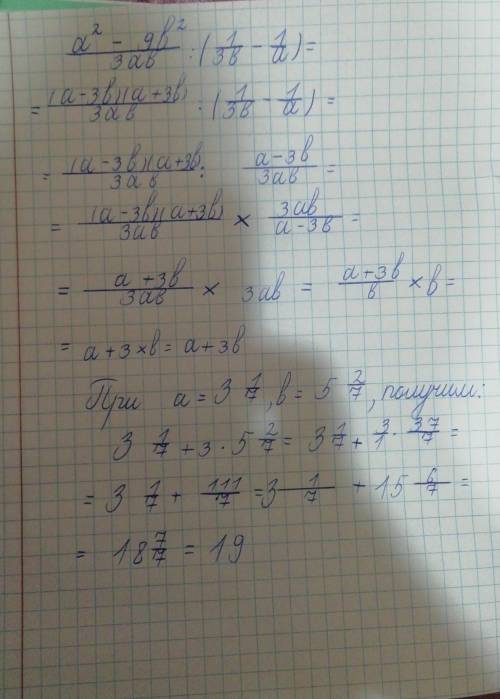 a² - 9b² / 3ab : (1/3b - 1/a) =
= (a-3b)(a+3b) / 3ab : (1/3b - 1/a) =
= (a-3b)(a+3b) / 3ab : a-3b / 3ab =
= (a-3b)(a+3b) / 3ab × 3ab / a-3b =
= a+3b / 3ab × 3ab = a+3b / b × b =
= a+3×b = a+3b
При a = 3 1/7, b = 5 2/7, получим:
3 1/7 + 3 · 5 2/7 = 3 1/7 + 3/1 · 37/7 =
= 3 1/7 + 111/7 = 3 1/7 + 15 6/7 =
= 18 7/7 = 19